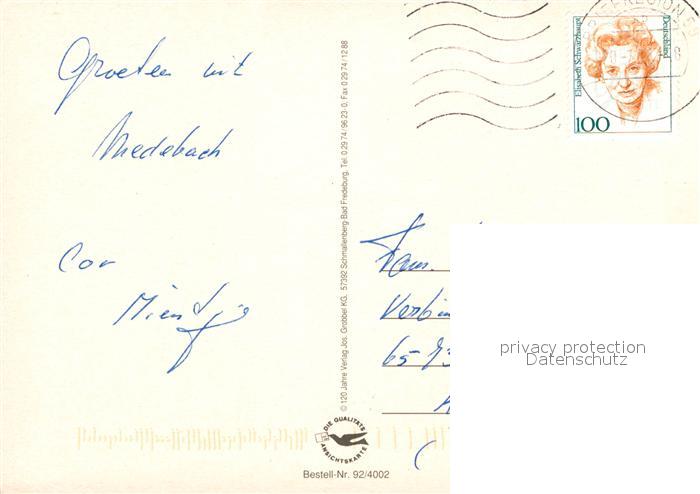 Groeten uit
Medebach
Cor
Mientje
© 120 Jahre Verlag Jos. Grobbel KG, 57392 Schmallenberg-Bad Fredeburg, Tel. 0 29 74 / 96 23-0, Fax 0 29 74 / 12 88
DIE QUALITÄTS
ANSICHTSKARTE
Bestell-Nr. 92/4002
Elisabeth Schwarzhaupt
Deutschland
100
Fam.
65
privacy protection
Datenschutz